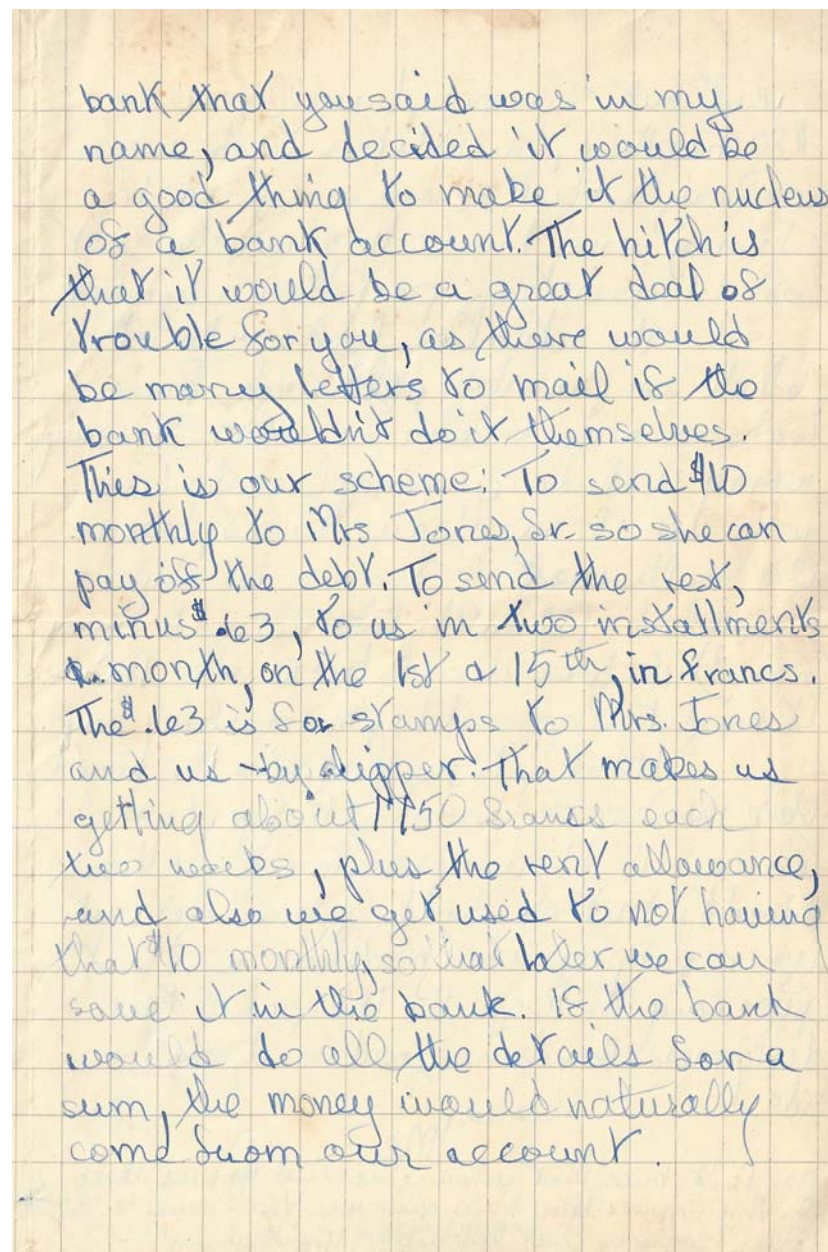 bank that you said was in my
name, and decided it would be
a good thing to make it the nucleus
of a bank account. The hitch is
that it would be a great deal of
trouble for you, as there would
be many letters to mail if the
bank wouldn't do it themselves.
This is our scheme: To send $10
monthly to Mrs Jones, Sr. so she can
pay off the debt. To send the rest,
minus $.63, to us in two installments
a month, on the 1st & 15th, in francs.
The $.63 is for stamps to Mrs. Jones
and us - by clipper. That makes us
getting about 1750 francs each
two weeks, plus the rent allowance,
and also we get used to not having
that $10 monthly, so that later we can
save it in the bank. If the bank
would do all the details for a
sum, the money would naturally
come from our account.